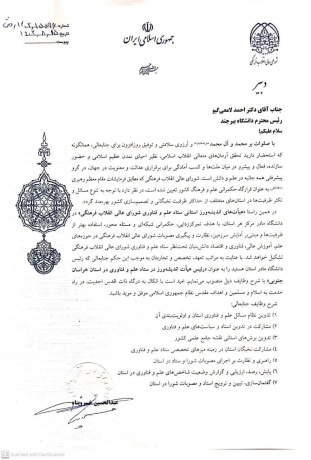 جمهوری اسلامی ایران
دبیر
جناب آقای دکتر احمد لامعی‌گیو
رئیس محترم دانشگاه بیرجند
سلام علیکم؛
با صلوات بر محمد و آل محمد و آرزوی سلامتی و توفیق روزافزون برای جنابعالی، همانگونه
که استحضار دارید تحقق آرمان‌های متعالی انقلاب اسلامی، نظیر احیای تمدن عظیم اسلامی و حضور
سازنده، فعال و پیشرو در میان ملت‌ها و کسب آمادگی برای برقراری عدالت و معنویت در جهان، در گرو
پیشرفتی همه جانبه در علم و دانش است. شورای عالی انقلاب فرهنگی که مطابق فرمایشات مقام معظم رهبری
به عنوان قرارگاه حکمرانی علم و فرهنگ کشور تعیین شده است، در نظر دارد با توجه به تنوع مسائل و
تکثر ظرفیت‌ها در استان‌های مختلف از حداکثر ظرفیت نخبگانی و تصمیم‌سازی کشور بهره‌مند گردد.
در همین راستا «هیأت‌های اندیشه‌ورز استانی ستاد علم و فناوری شورای عالی انقلاب فرهنگی» در
دانشگاه مادر مرکز هر استان، با هدف تمرکززدایی، حکمرانی شبکه‌ای و مسئله محور، استفاده بهتر از
ظرفیت‌ها و مبتنی بر آمایش سرزمین، نظارت و پیگیری مصوبات شورای عالی انقلاب فرهنگی در حوزه‌های
علم، آموزش عالی، فناوری و اقتصاد دانش‌بنیان تحت‌نظر ستاد علم و فناوری شورای عالی انقلاب فرهنگی
تشکیل خواهد شد. با عنایت به مراتب تعهد، تخصص و تجارب‌تان به موجب این حکم جنابعالی که رئیس
دانشگاه مادر استان هستید را به عنوان «رئیس هیأت اندیشه‌ورز ستاد علم و فناوری در استان خراسان
جنوبی» با شرح وظایف ذیل منصوب می‌نمایم. امید است با اتکال به درگاه ذات اقدس احدیت، در راه
خدمت به اسلام و مسلمین و اهداف مقدس نظام جمهوری اسلامی موفق و موید باشید.
شرح وظایف جنابعالی:
۱) تدوین نظام مسائل علم و فناوری استان و اولویت‌بندی آن
۲) مشارکت در تدوین اسناد و سیاست‌های علم و فناوری
۳) تدوین برش‌های استانی نقشه جامع علمی کشور
۴) مشارکت نخبگان استان در زمینه میزهای تخصصی ستاد علم و فناوری
۵) راهبری و نظارت بر اجرای مصوبات شورا در استان
۶) پایش، رصد، ارزیابی و گزارش وضعیت شاخص‌های علم و فناوری در استان
۷) گفتمان‌سازی، تبیین و ترویج اسناد و مصوبات شورا در استان
عبدالحسین خسروپناه
Scanned with CamScanner